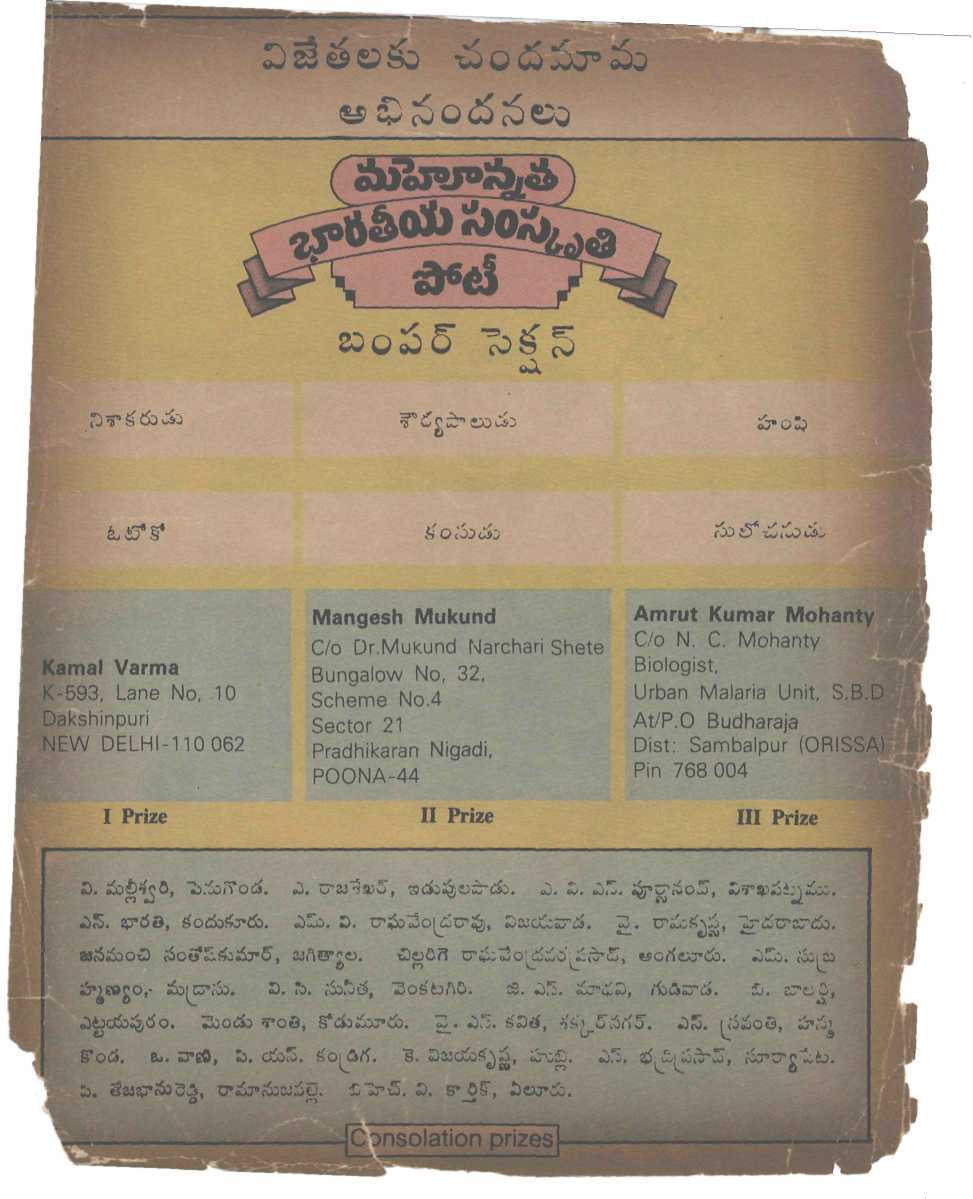 విజేతలకు చందమామ
అభినందనలు
మహోన్నత
భారతీయ సంస్కృతి
పోటీ
బంపర్ సెక్షన్
నిశాకరుడు
శౌర్యపాలుడు
హంషి
ఓటోకో
కంసుడు
సులోచనుడు
Kamal Varma
K-593, Lane No, 10
Dakshinpuri
NEW DELHI-110 062
I Prize
Mangesh Mukund
C/o Dr.Mukund Narchari Shete
Bungalow No, 32,
Scheme No.4
Sector 21
Pradhikaran Nigadi,
POONA-44
II Prize
Amrut Kumar Mohanty
C/o N. C. Mohanty
Biologist,
Urban Malaria Unit, S.B.D
At/P.O Budharaja
Dist: Sambalpur (ORISSA)
Pin 768 004
III Prize
వి. మల్లీశ్వరి, పెనుగొండ. ఎ. రాజశేఖర్, ఇడుపులపాడు. ఎ. వి. ఎస్. పూర్ణానంద్, విశాఖపట్నము.
ఎన్. భారతి, కందుకూరు. ఎమ్. వి. రాఘవేంద్రరావు, విజయవాడ. వై. రామకృష్ణ, హైదరాబాదు.
జనమంచి సంతోష్‌కుమార్, జగిత్యాల. చిల్లరిగె రాఘవేంద్రవరప్రసాద్, అంగలూరు. ఎమ్. సుబ్ర
హ్మణ్యం, మద్రాసు. వి. సి. సునీత, వెంకటగిరి. జి. ఎస్. మాధవి, గుడివాడ. బి. బాలర్షి,
ఎట్టయపురం. మెండు శాంతి, కోడుమూరు. వై. ఎస్. కవిత, శక్కర్‌నగర్. ఎస్. స్రవంతి, హన్మ
కొండ. ఒ. వాణి, పి. యస్. కండ్రిగ. కె. విజయకృష్ణ, హుబ్లి. ఎస్. భద్రిప్రసాద్, సూర్యాపేట.
పి. తేజభానురెడ్డి, రామానుజపల్లె. బిహెచ్. వి. కార్తిక్, ఏలూరు.
Consolation prizes